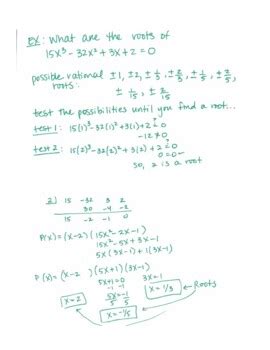 EX: What are the roots of
15x³ - 32x² + 3x + 2 = 0
possible rational ±1, ±2, ±1/3, ±2/3, ±1/5, ±2/5,
roots: ±1/15, ±2/15
test the possibilities until you find a root...
test 1: 15(1)³-32(1)²+3(1)+2 ≟ 0
-12≠0
test 2: 15(2)³-32(2)²+3(2)+2 ≟ 0
0=0
so, 2 is a root
2| 15 -32 3 2
30 -4 -2
15 -2 -1 0
P(x)=(x-2)(15x²-2x-1)
15x²-5x+3x-1
5x(3x-1)+1(3x-1)
P(x)=(x-2)(5x+1)(3x-1)
5x+1=0 3x=1
-1 -1
x=2 5x=-1 x=1/3 ← Roots
5 5
x=-1/5